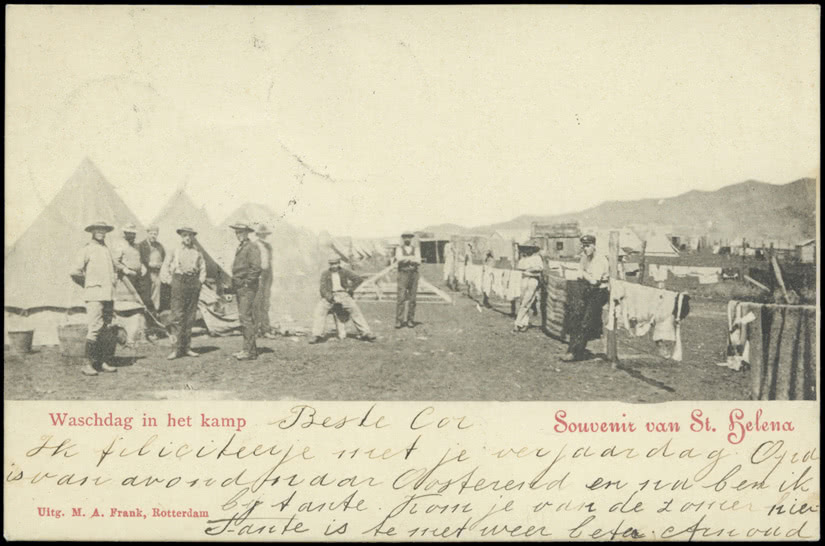 Waschdag in het kamp Beste Cor Souvenir van St. Helena
Ik feliciteer je met je verjaardag. Opa
is van avond naar Oosterend en nu ben ik
bij tante. Kom je van de zomer hier
Uitg. M. A. Frank, Rotterdam
Tante is te met weer beter. Arnoud